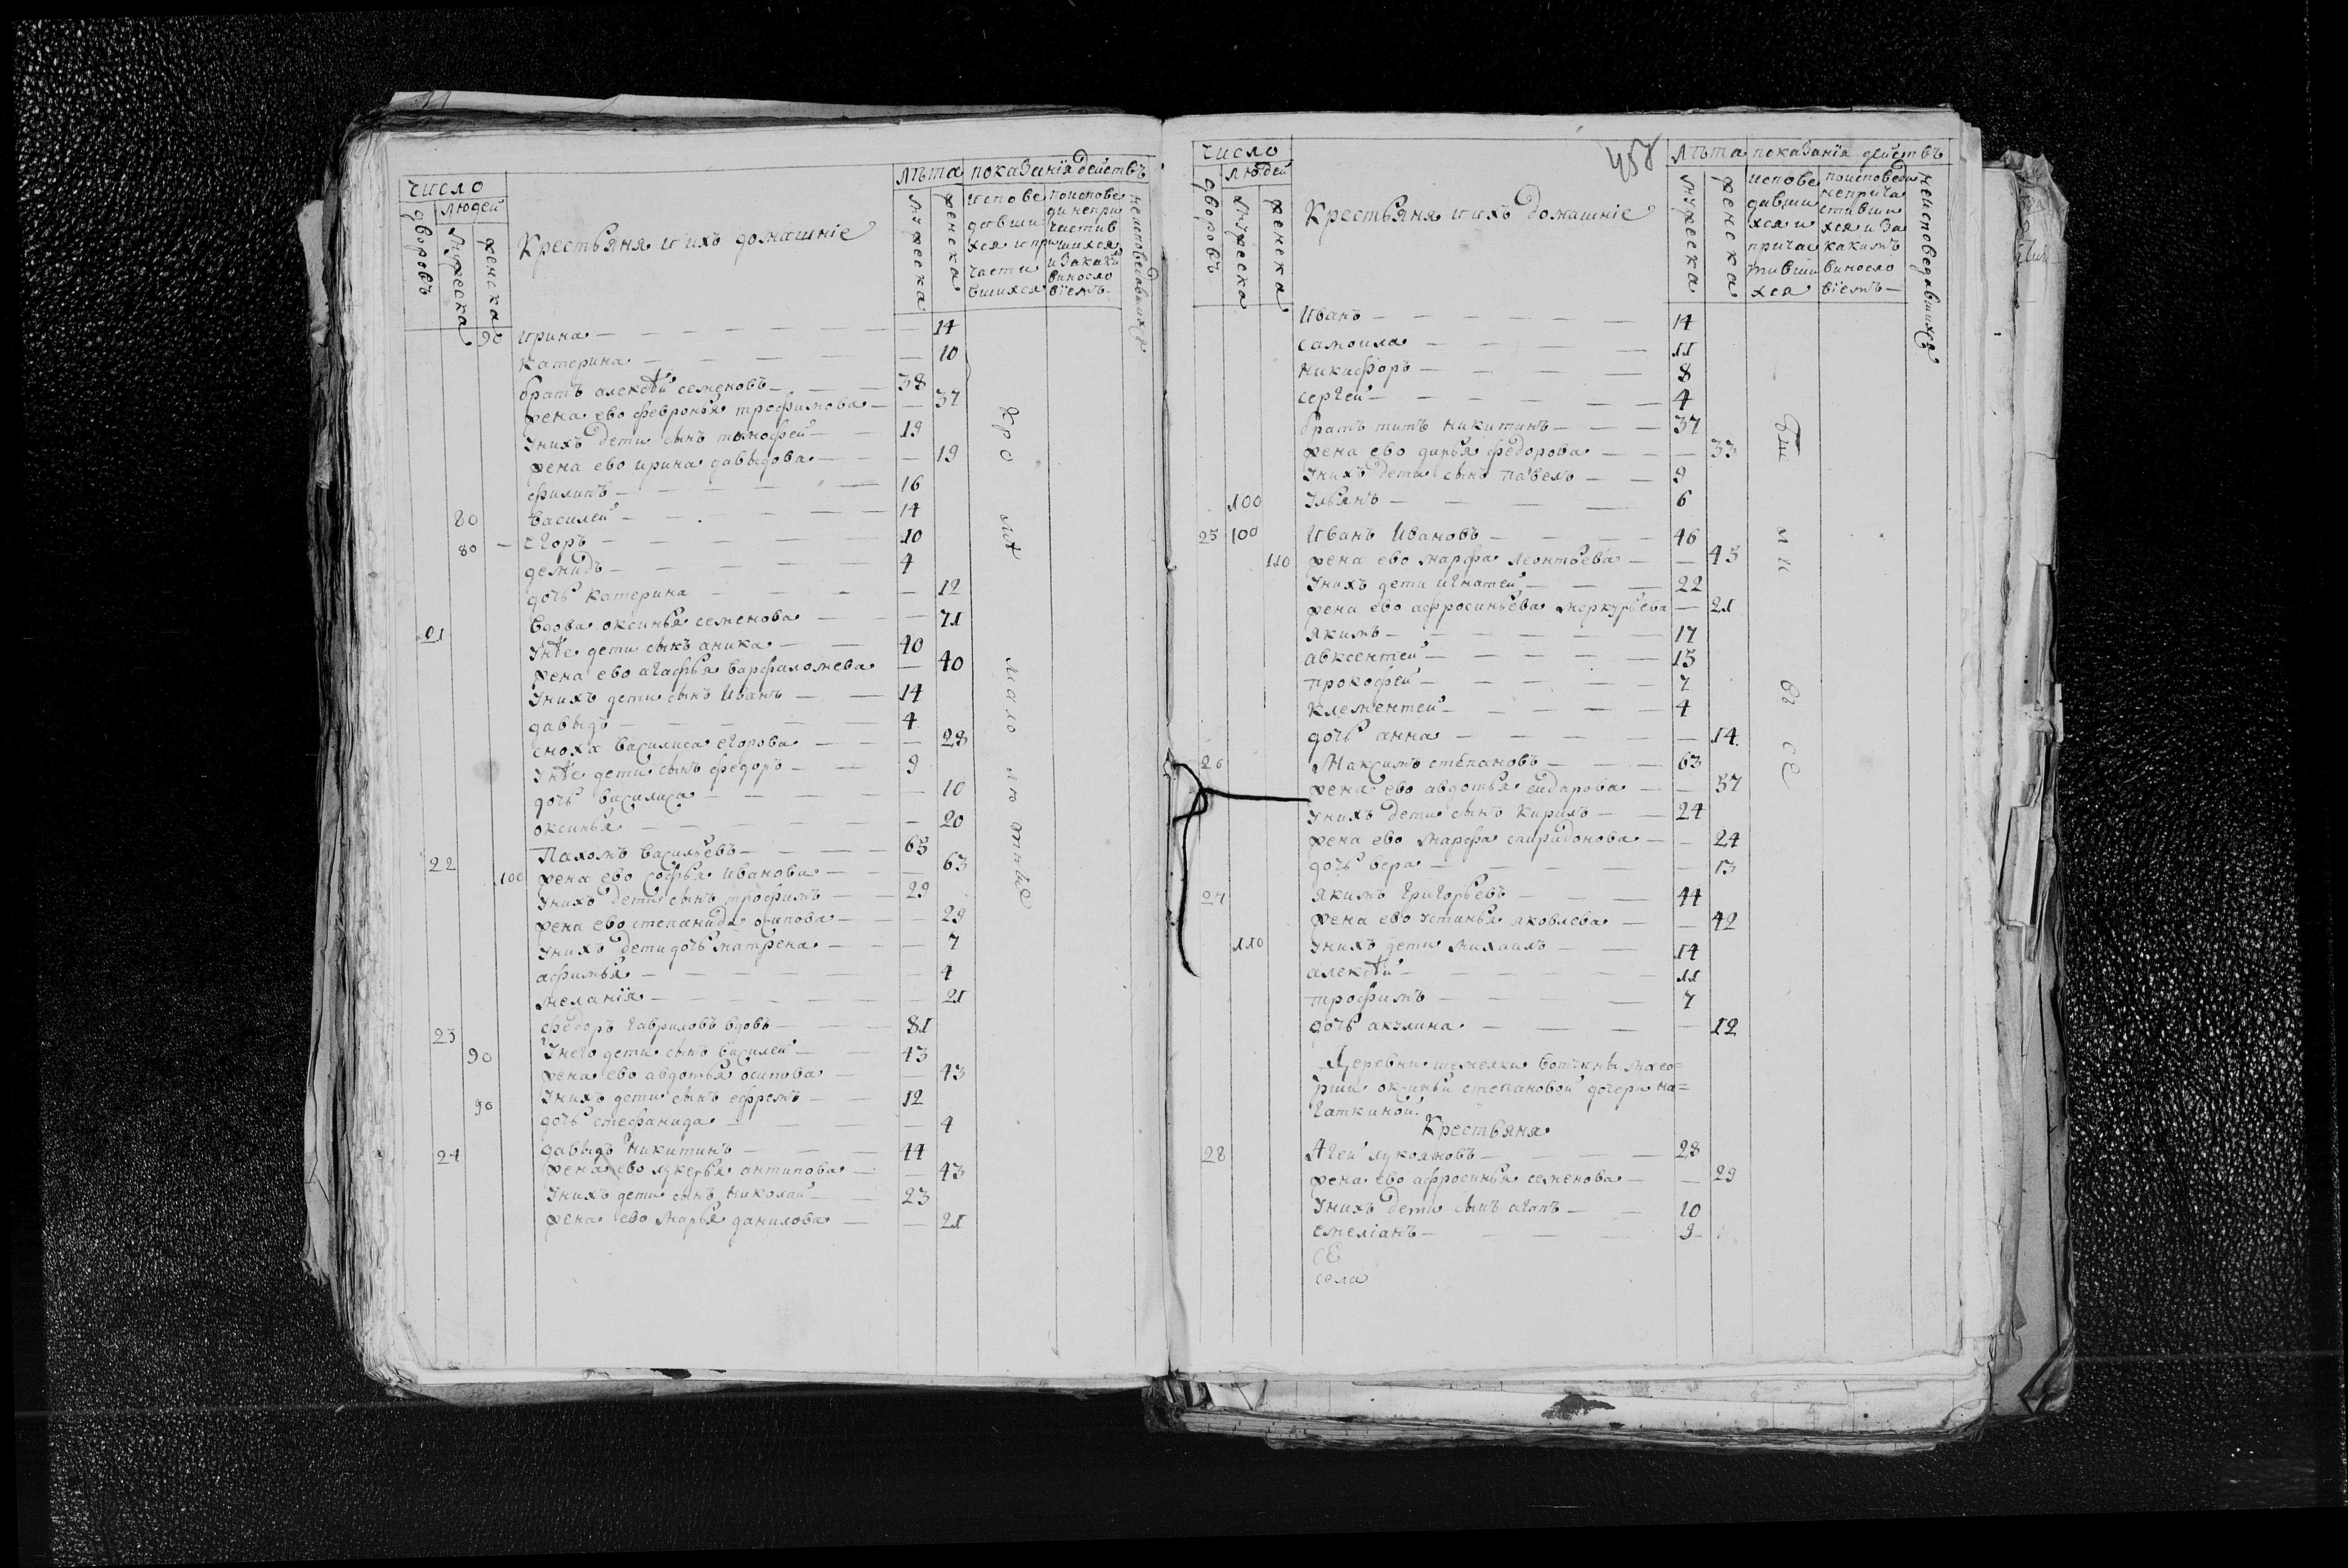 число
людей
дворовъ
мужеска
женска
Крестьяня и ихъ домашнiе
лѣта
показанiя действъ
мужеска
женска
испове
давши
хся и при
части
вшихся
поиспове
ди непри
частив
шихся
и за каки
виносло
вiемъ
неисповедавшихся
90 ирина — 14
катерина — 10
братъ алексѣй семеновъ — 38
жена ево февронья трофимова — 37
у нихъ дети сынъ тимофей — 19
жена ево ирина давыдова — 19
филипъ — 16
80 василей — 14
80 егоръ — 10
демидъ — 4
дочь катерина — 12
21 вдова оксинья семенова — 71
у нѣе дети сынъ аника — 40
жена ево агафья варфаломева — 40
у нихъ дети сынъ иванъ — 14
давыдъ — 4
сноха василиса егорова — 28
у нѣе дети сынъ федоръ — 9
дочь василиса — 10
оксинья — 20
22 Пахомъ васильевъ — 65
100 жена ево софья иванова — 63
у нихъ дети сынъ трофимъ — 29
жена ево степанида осипова — 29
у нихъ дети дочь матрена — 7
афимья — 4
меланiя — 21
23 федоръ гавриловъ вдовъ — 81
90 у него дети сынъ василей — 43
жена ево авдотья осипова — 43
90 у нихъ дети сынъ ефремъ — 12
дочь стефанида — 4
24 давыдъ никитинъ — 44
жена ево лукерья антипова — 43
у нихъ дети сынъ николай — 23
жена ево марья данилова — 21
кро мѣ мало лѣтные
458
число
людей
дворовъ
мужеска
женска
Крестьяня и ихъ домашнiе
лѣта
показанiя действъ
мужеска
женска
испове
давши
хся и
причас
тивши
хся
поисповеди
неприча
стивши
хся и за
какимъ
виносло
вiемъ —
неисповедавшихся
Иванъ — 14
самоила — 11
никифоръ — 8
сергей — 4
братъ титъ никитинъ — 37
жена ево дарья федорова — 33
у нихъ дети сынъ павелъ — 9
100 ульянъ — 6
25 100 Иванъ Ивановъ — 46
110 жена ево марфа леонтьева — 45
у нихъ дети игнатей — 22
жена ево афросиньева меркурьева — 21
якимъ — 17
авксентей — 15
прокофей — 7
клементей — 4
дочь анна — 14
26 Максимъ степановъ — 63
жена ево авдотья сидарова — 57
у нихъ дети сынъ кирилъ — 24
жена ево марфа спиридонова — 24
дочь вера — 13
27 якимъ григорьевъ — 44
жена ево устинья яковлева — 42
110 у нихъ дети михаилъ — 14
алексѣй — 11
трофимъ — 7
дочь акулина — 12
Деревни шемелки вотчины маео=
рши оксиньи степановой дочери на=
гаткиной
Крестьяня
28 Агей лукояновъ — 28
жена ево афросинья семенова — 29
у нихъ дети сынъ агапъ — 10
емелiанъ — 9
се
села